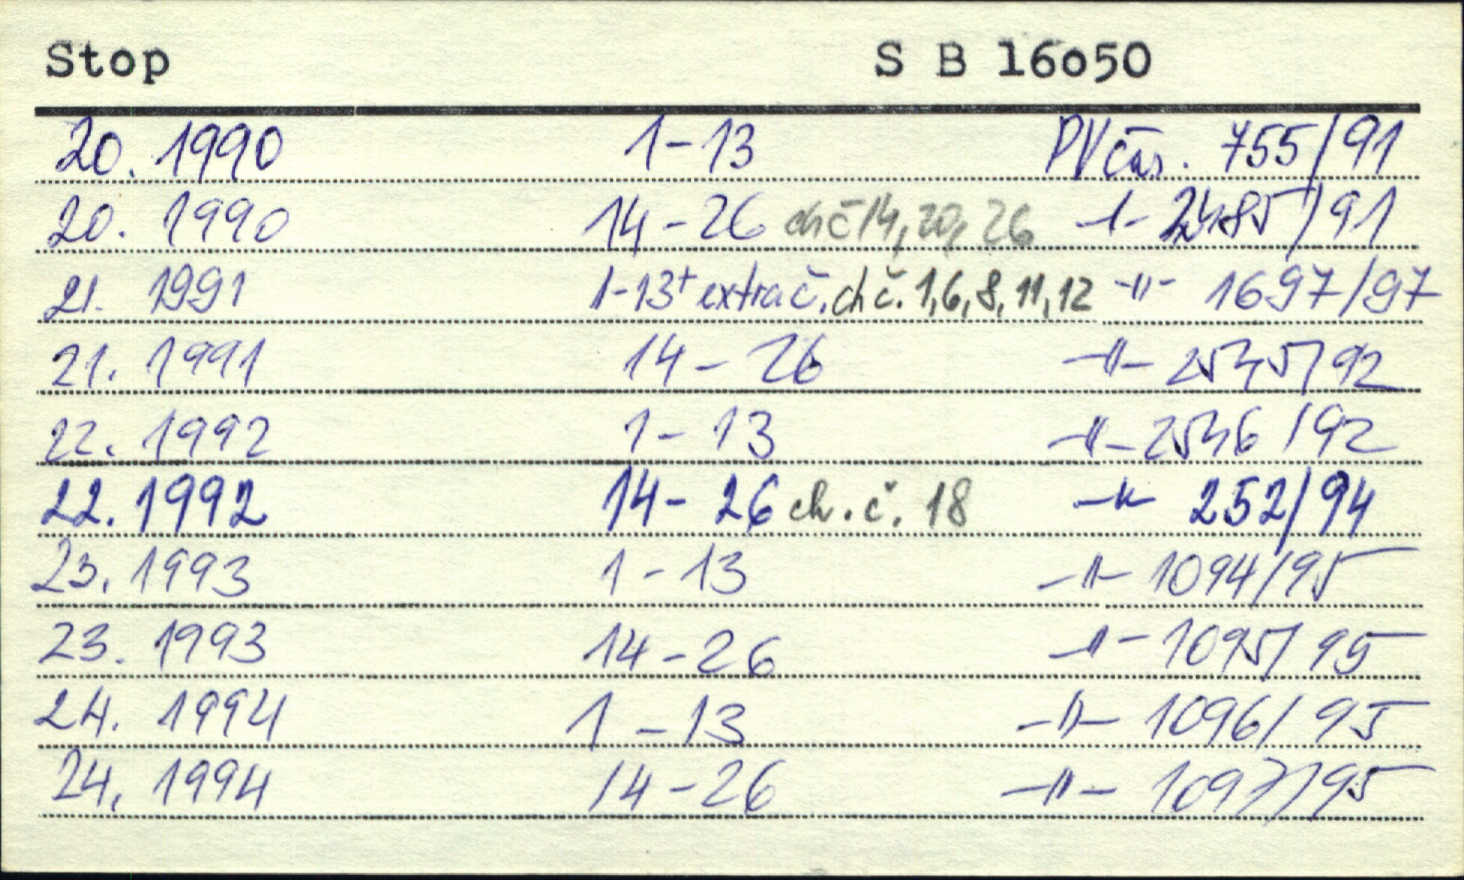 Stop S B 16o50
20. 1990 1-13 PV čas. 755/91
20. 1990 14-26 ch č 14, 20, 26 -"- 2485/91
21. 1991 1-13+ extra č. ch č. 1,6,8,11,12 -"- 1697/97
21. 1991 14-26 -"- 2535/92
22. 1992 1-13 -"- 2536/92
22. 1992 14-26 ch. č. 18 -"- 252/94
23. 1993 1-13 -"- 1094/95
23. 1993 14-26 -"- 1095/95
24. 1994 1-13 -"- 1096/95
24. 1994 14-26 -"- 1097/95